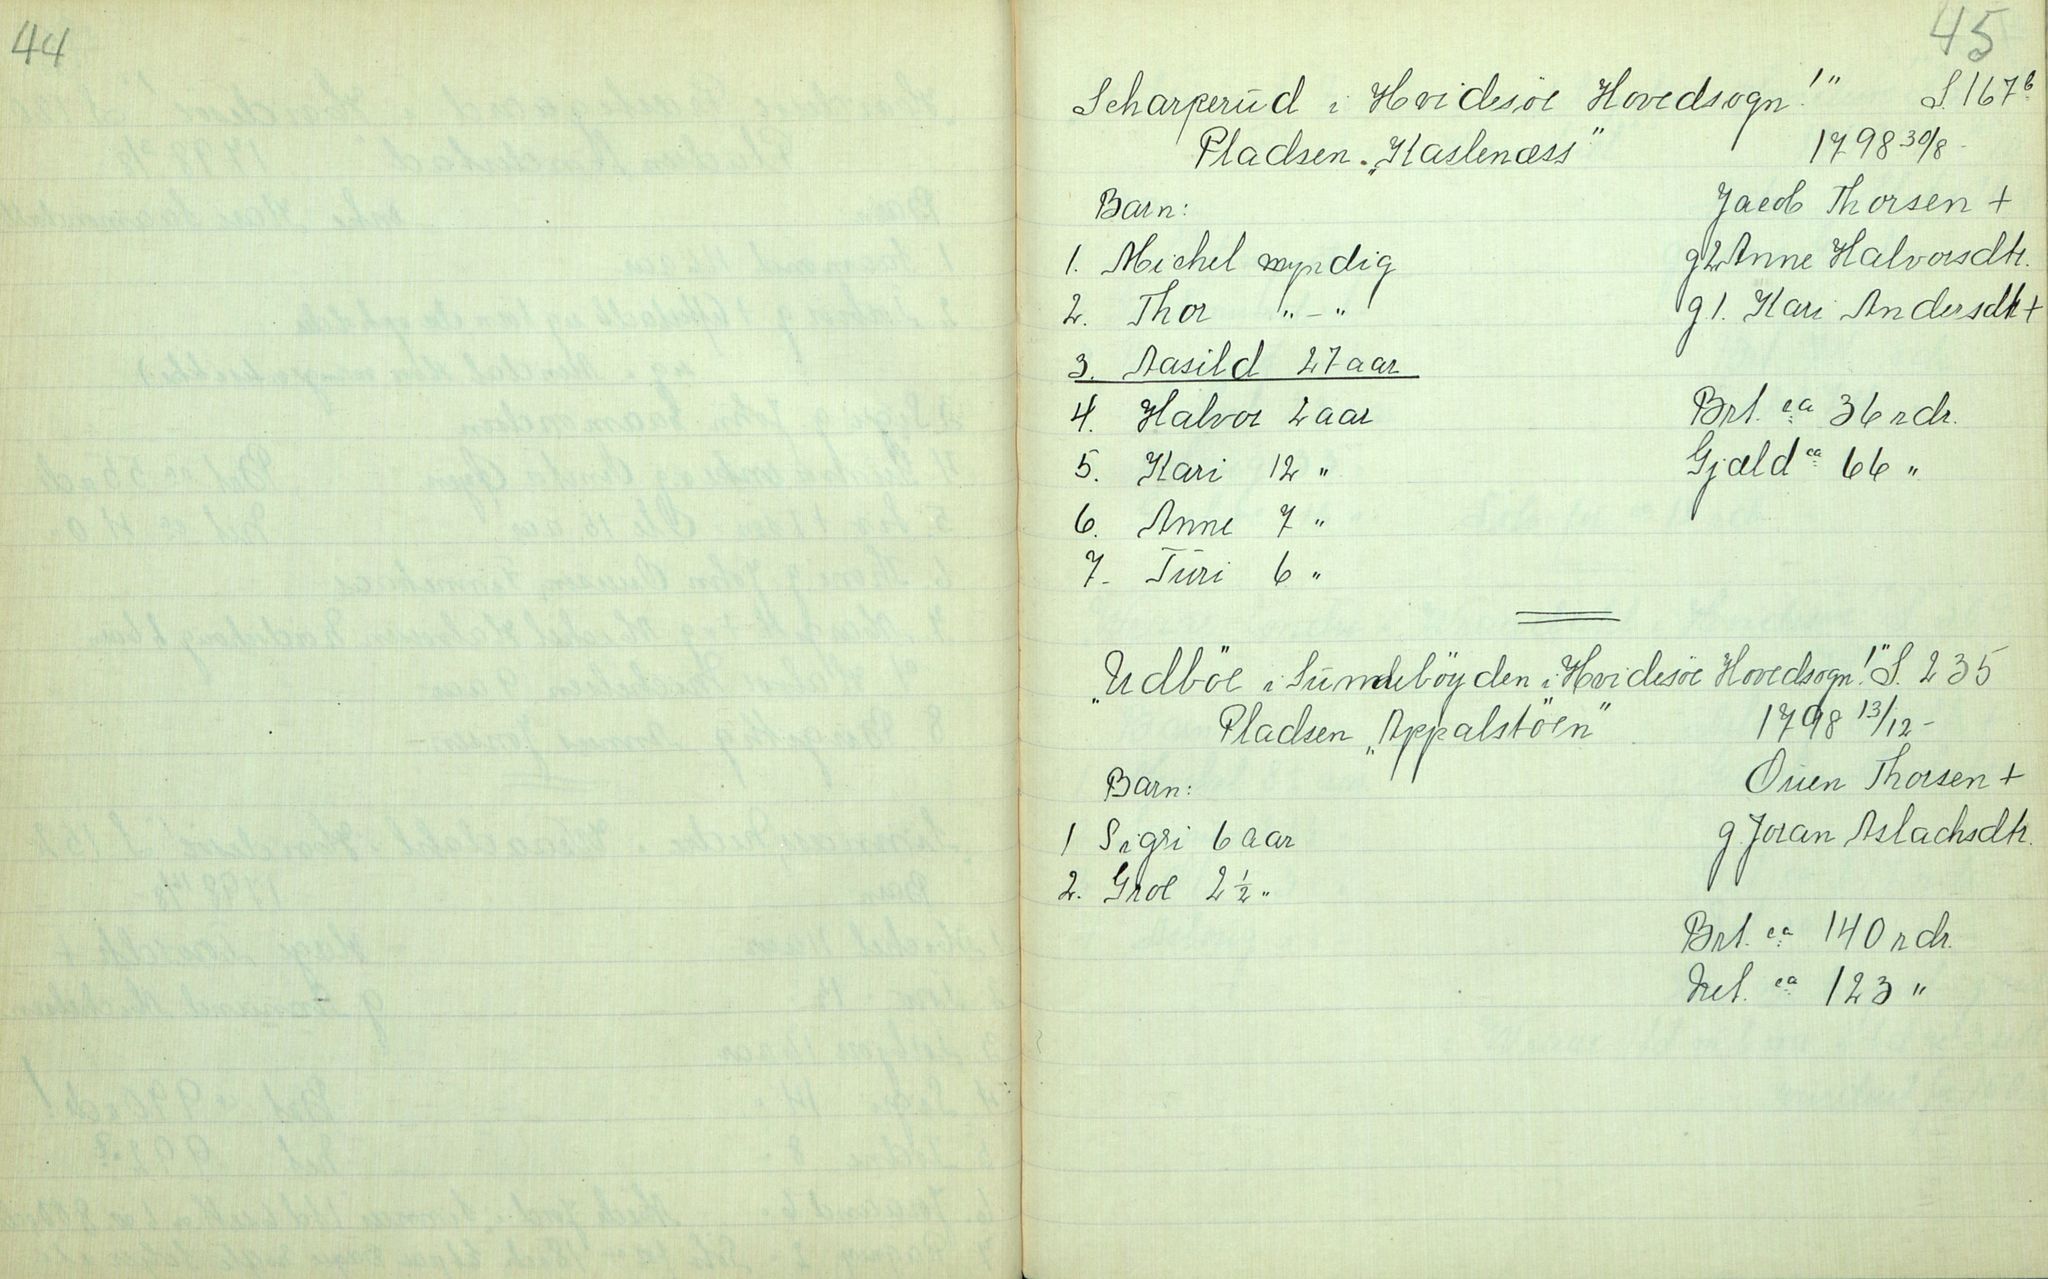 44
45
Scharperud i Hvidesöe Hovedsogn!" S. 167b
Pladsen „Kaslenæss" 1798 30/8 -
Barn: Jacob Thorsen +
1. Michel myndig g2 Anne Halvorsdtr.
2. Thor " - " g 1. Kari Andersdtr +
3. Aasild 27 aar
4. Halvor 2 aar Brt. ca 36 rdr.
5. Kari 12 " Gjæld ca 66 "
6. Anne 7 "
7- Turi 6 "
„Udböe" i Sundeböyden i Hvidesöe Hovedsogn!" S. 235
Pladsen „Appalstöen" 1798 13/12 -
Barn: Ouen Thorsen +
1 Sigri 6 aar g. Joran Aslachsdtr.
2. Groe 2 1/2 "
Brt. ca 140 rdr.
Net. ca 123 "